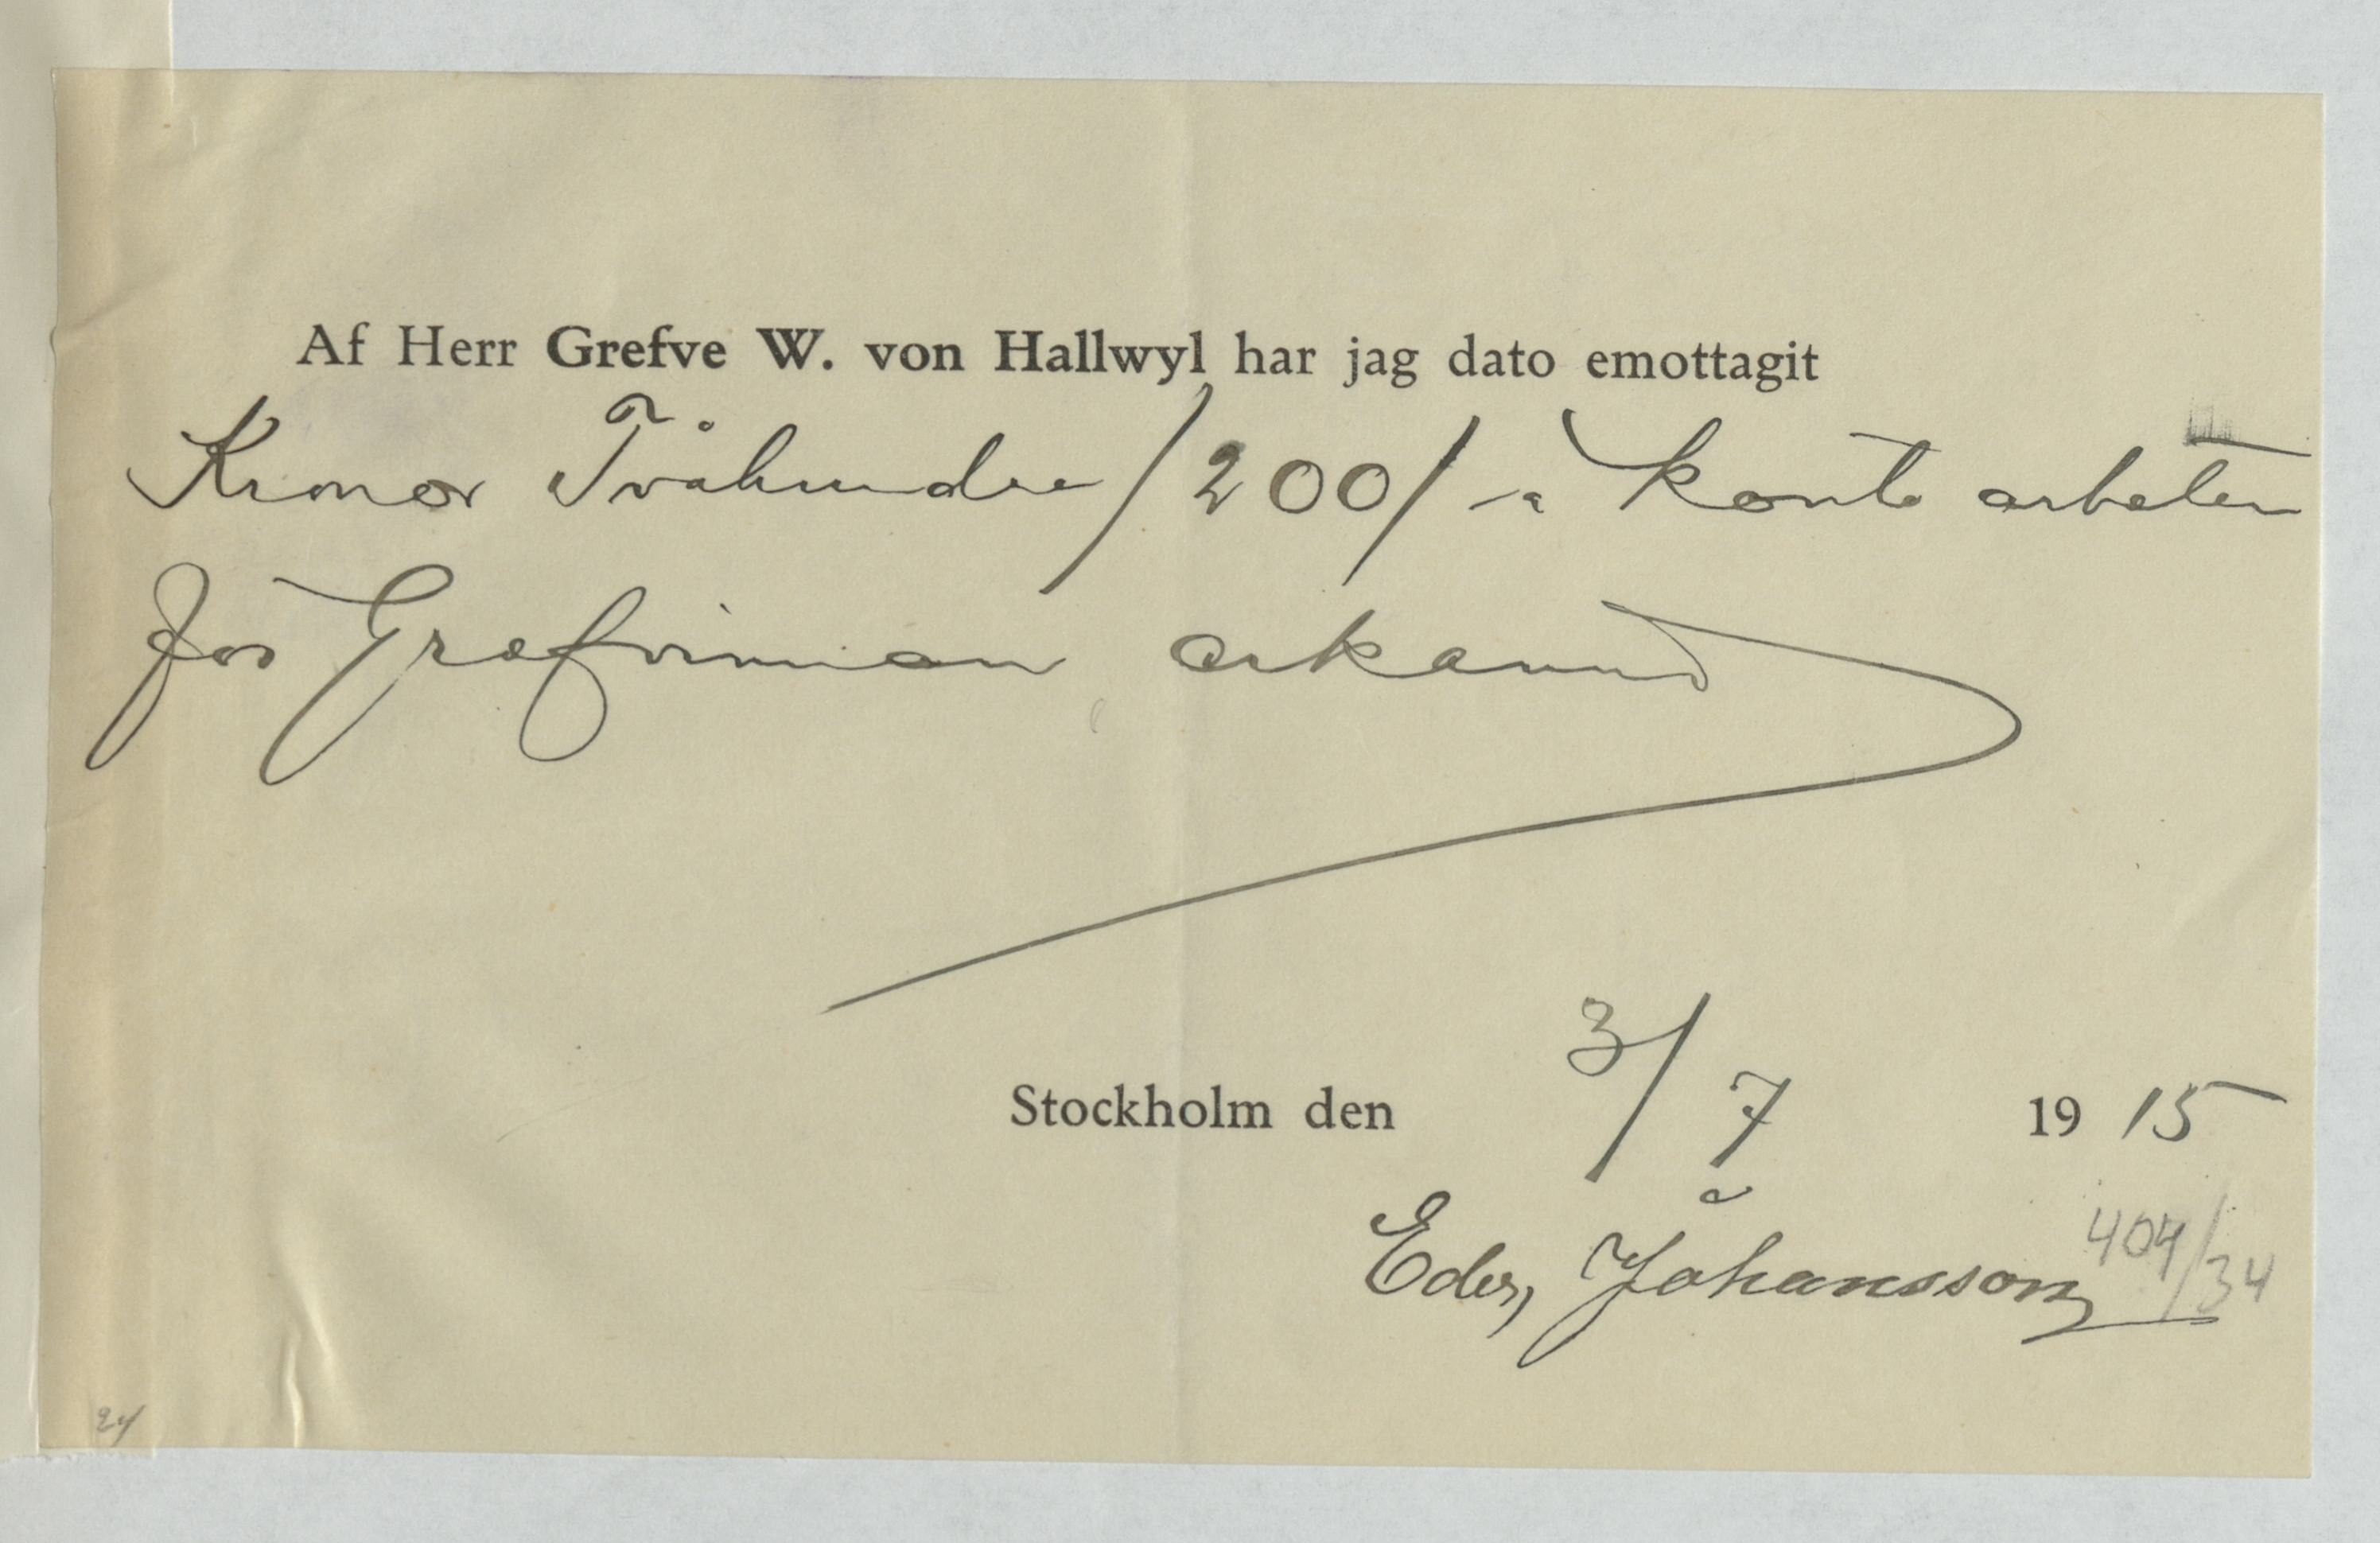 Af Herr Grefve W. von Hallwyl har jag dato emottagit
Kronor Tvåhundra /200/ - à konto arbeten
för Grefvinnan erkännes
Stockholm den 3/7 1915
Edv, Johansson
404/34
24